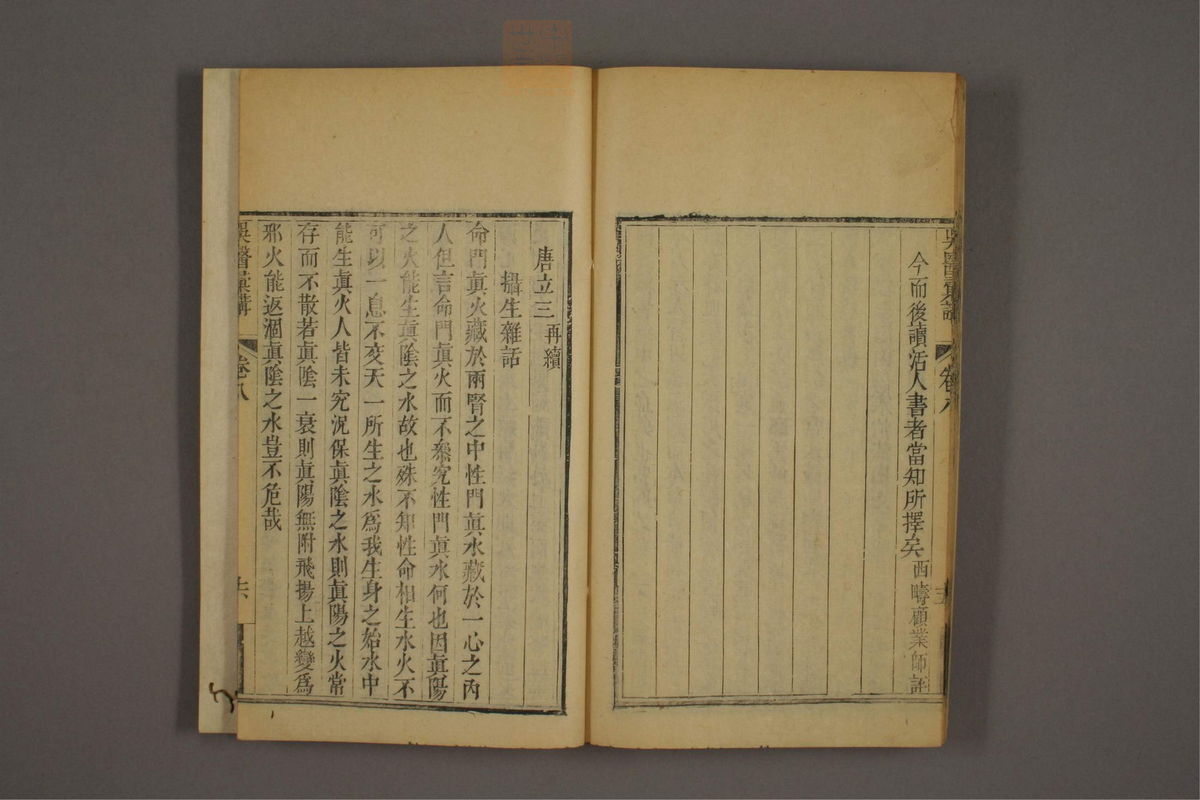 吳醫彙講
卷八
今而後讀活人書者當知所擇矣西疇顧業師註
唐立三再續
攝生雜話
命門眞火藏於兩腎之中性門眞水藏於一心之內
人但言命門眞火而不叅究性門眞水何也因眞陽
之火能生眞陰之水故也殊不知性命相生水火不
可以一息不交天一所生之水爲我生身之始水中
能生眞火人皆未究況保眞陰之水則眞陽之火常
存而不散若眞陰一衰則眞陽無附飛揚上越變爲
邪火能返涸眞陰之水豈不危哉
吳醫彙講
卷八